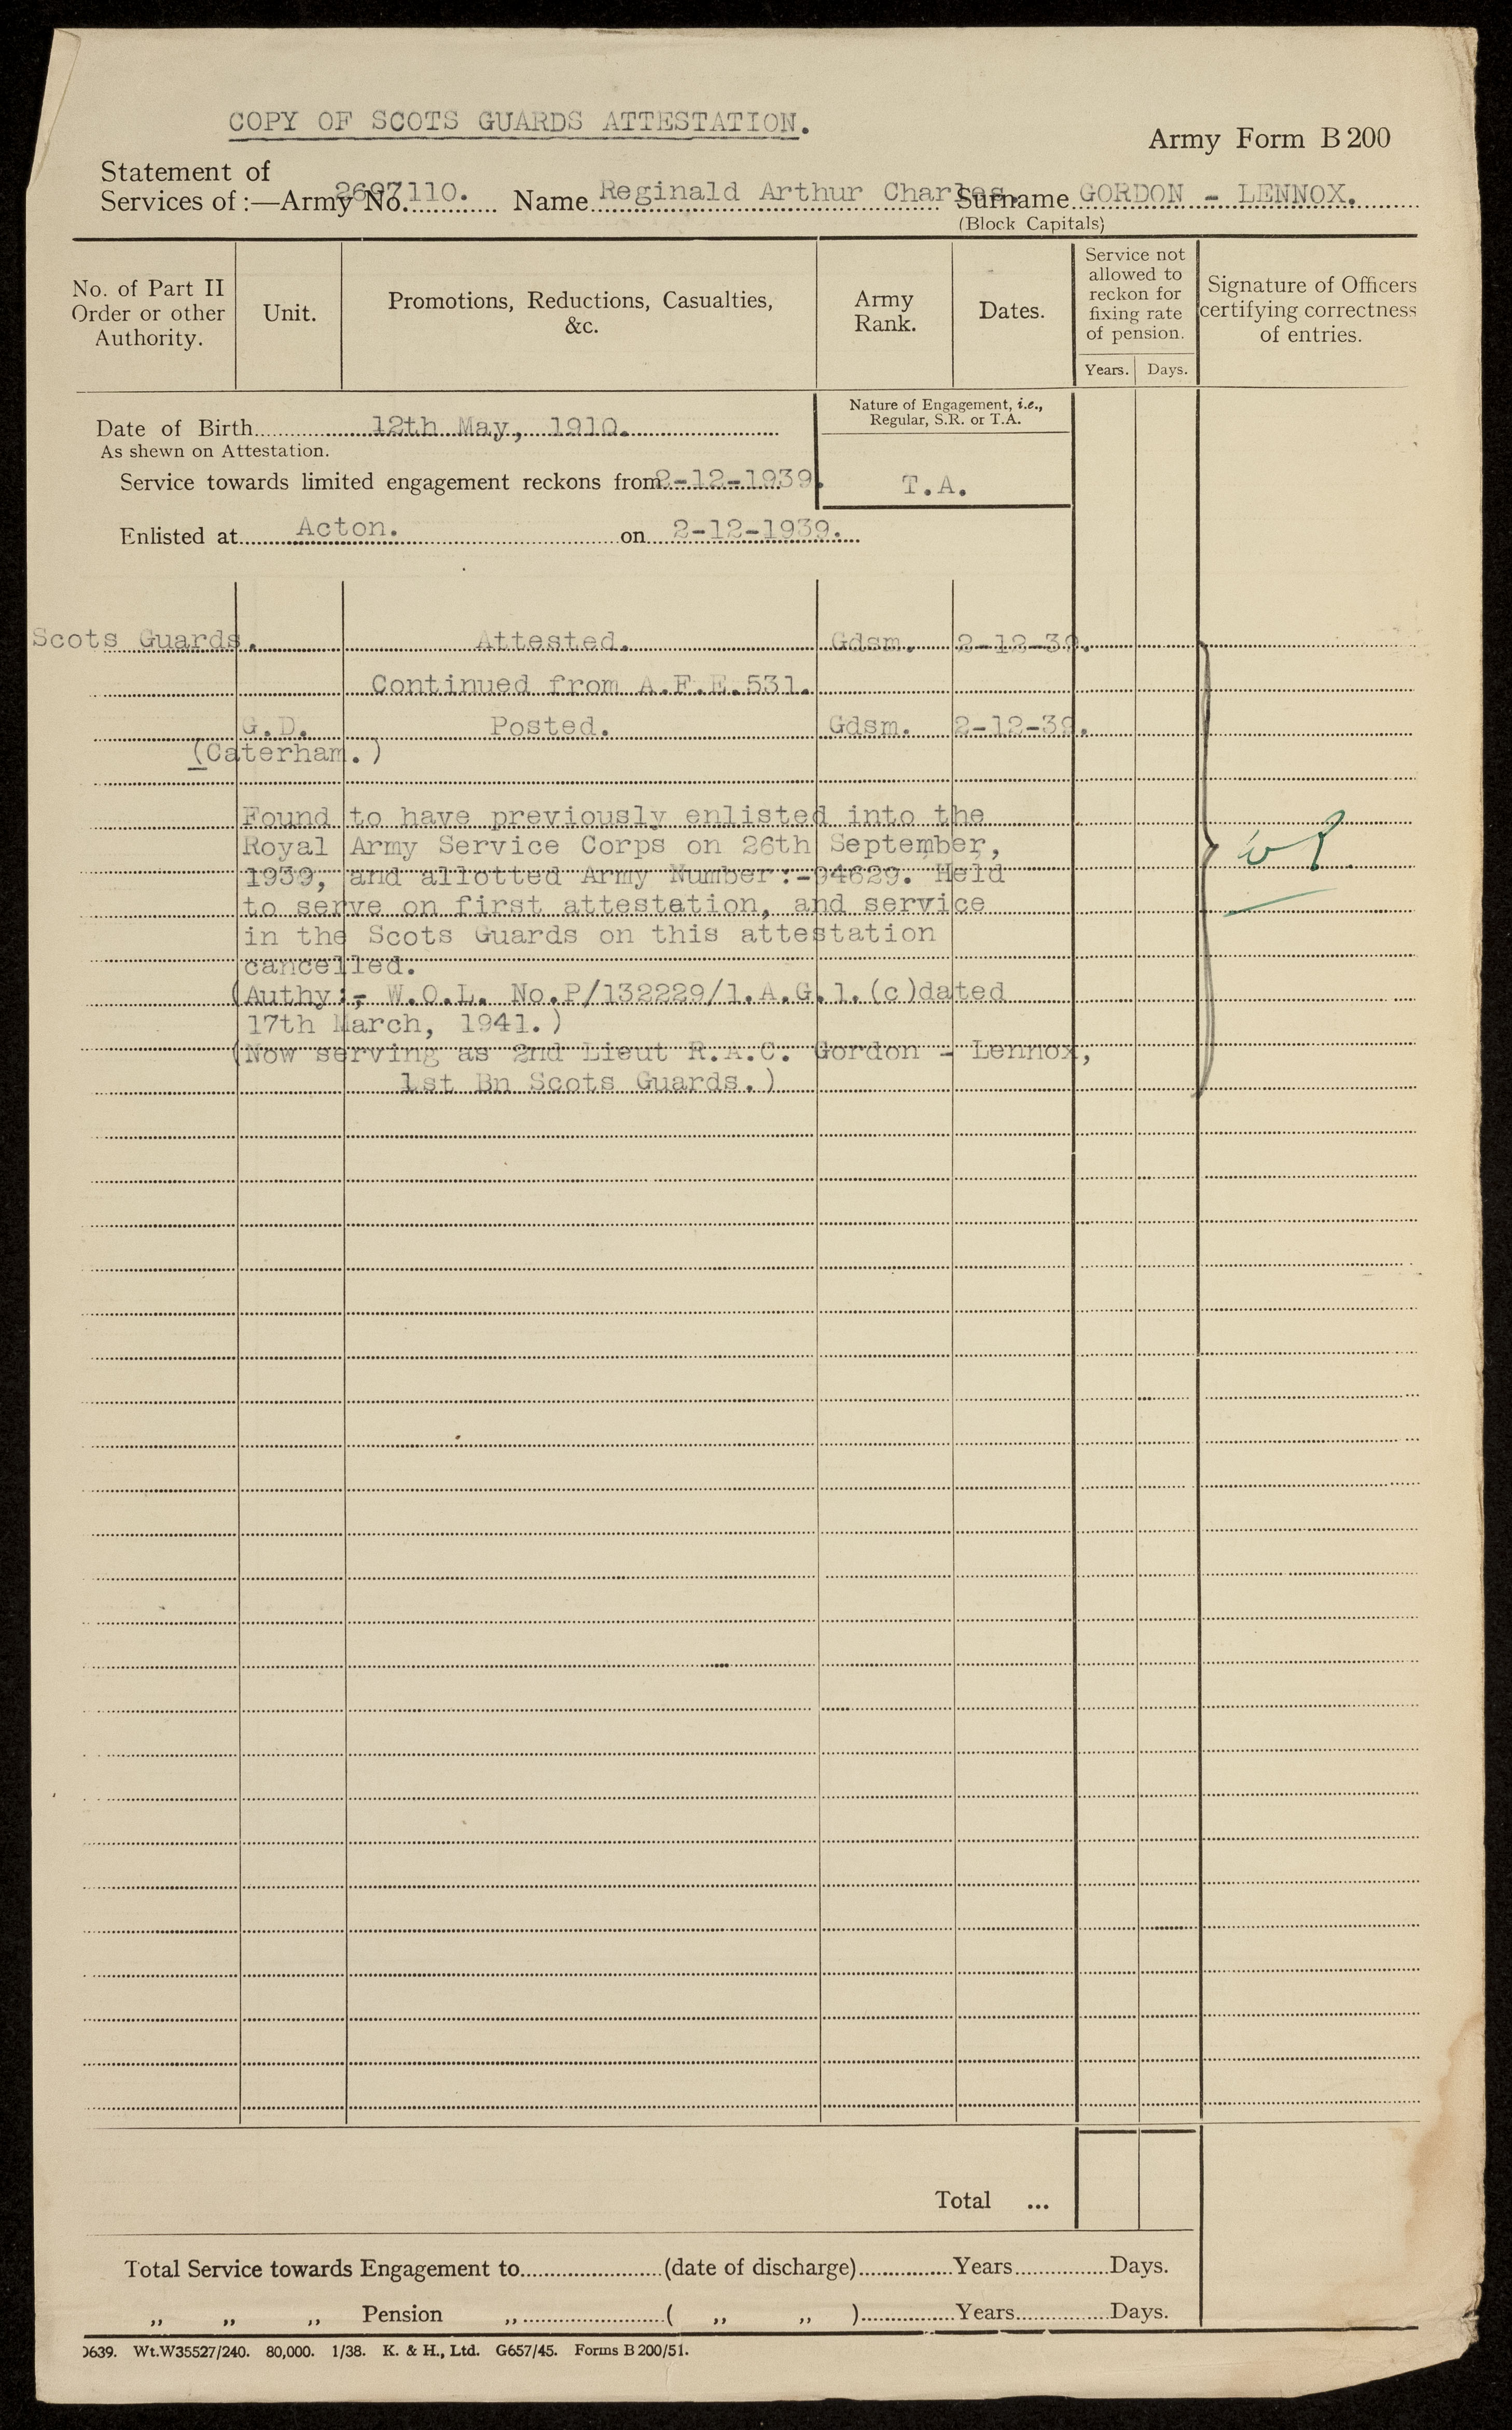 COPY OF SCOTS GUARDS ATTESTATION.
Army Form B 200
Statement of
Services of :—Army No. 2697110. Name Reginald Arthur Charles. Surname GORDON - LENNOX.
(Block Capitals)
No. of Part II Order or other Authority.
Unit.
Promotions, Reductions, Casualties, &c.
Army Rank.
Dates.
Service not allowed to reckon for fixing rate of pension.
Years. Days.
Signature of Officers certifying correctness of entries.
Nature of Engagement, i.e., Regular, S.R. or T.A.
Date of Birth 12th May, 1910.
As shewn on Attestation.
Service towards limited engagement reckons from 2-12-1939.
T.A.
Enlisted at Acton. on 2-12-1939.
Scots Guards. Attested. Gdsm. 2-12-39.
Continued from A.F.E.531.
G.D. Posted. Gdsm. 2-12-39.
(Caterham.)
Found to have previously enlisted into the
Royal Army Service Corps on 26th September,
1939, and allotted Army Number:-94629. Held
to serve on first attestation, and service
in the Scots Guards on this attestation
cancelled.
(Authy:- W.O.L. No.P/132229/1.A.G.1.(c)dated
17th March, 1941.)
(Now serving as 2nd Lieut R.A.C. Gordon - Lennox,
1st Bn Scots Guards.)
Total ...
Total Service towards Engagement to (date of discharge) Years Days.
„ „ „ Pension „ ( „ „ ) Years Days.
0639. Wt.W35527/240. 80,000. 1/38. K. & H., Ltd. G657/45. Forms B 200/51.